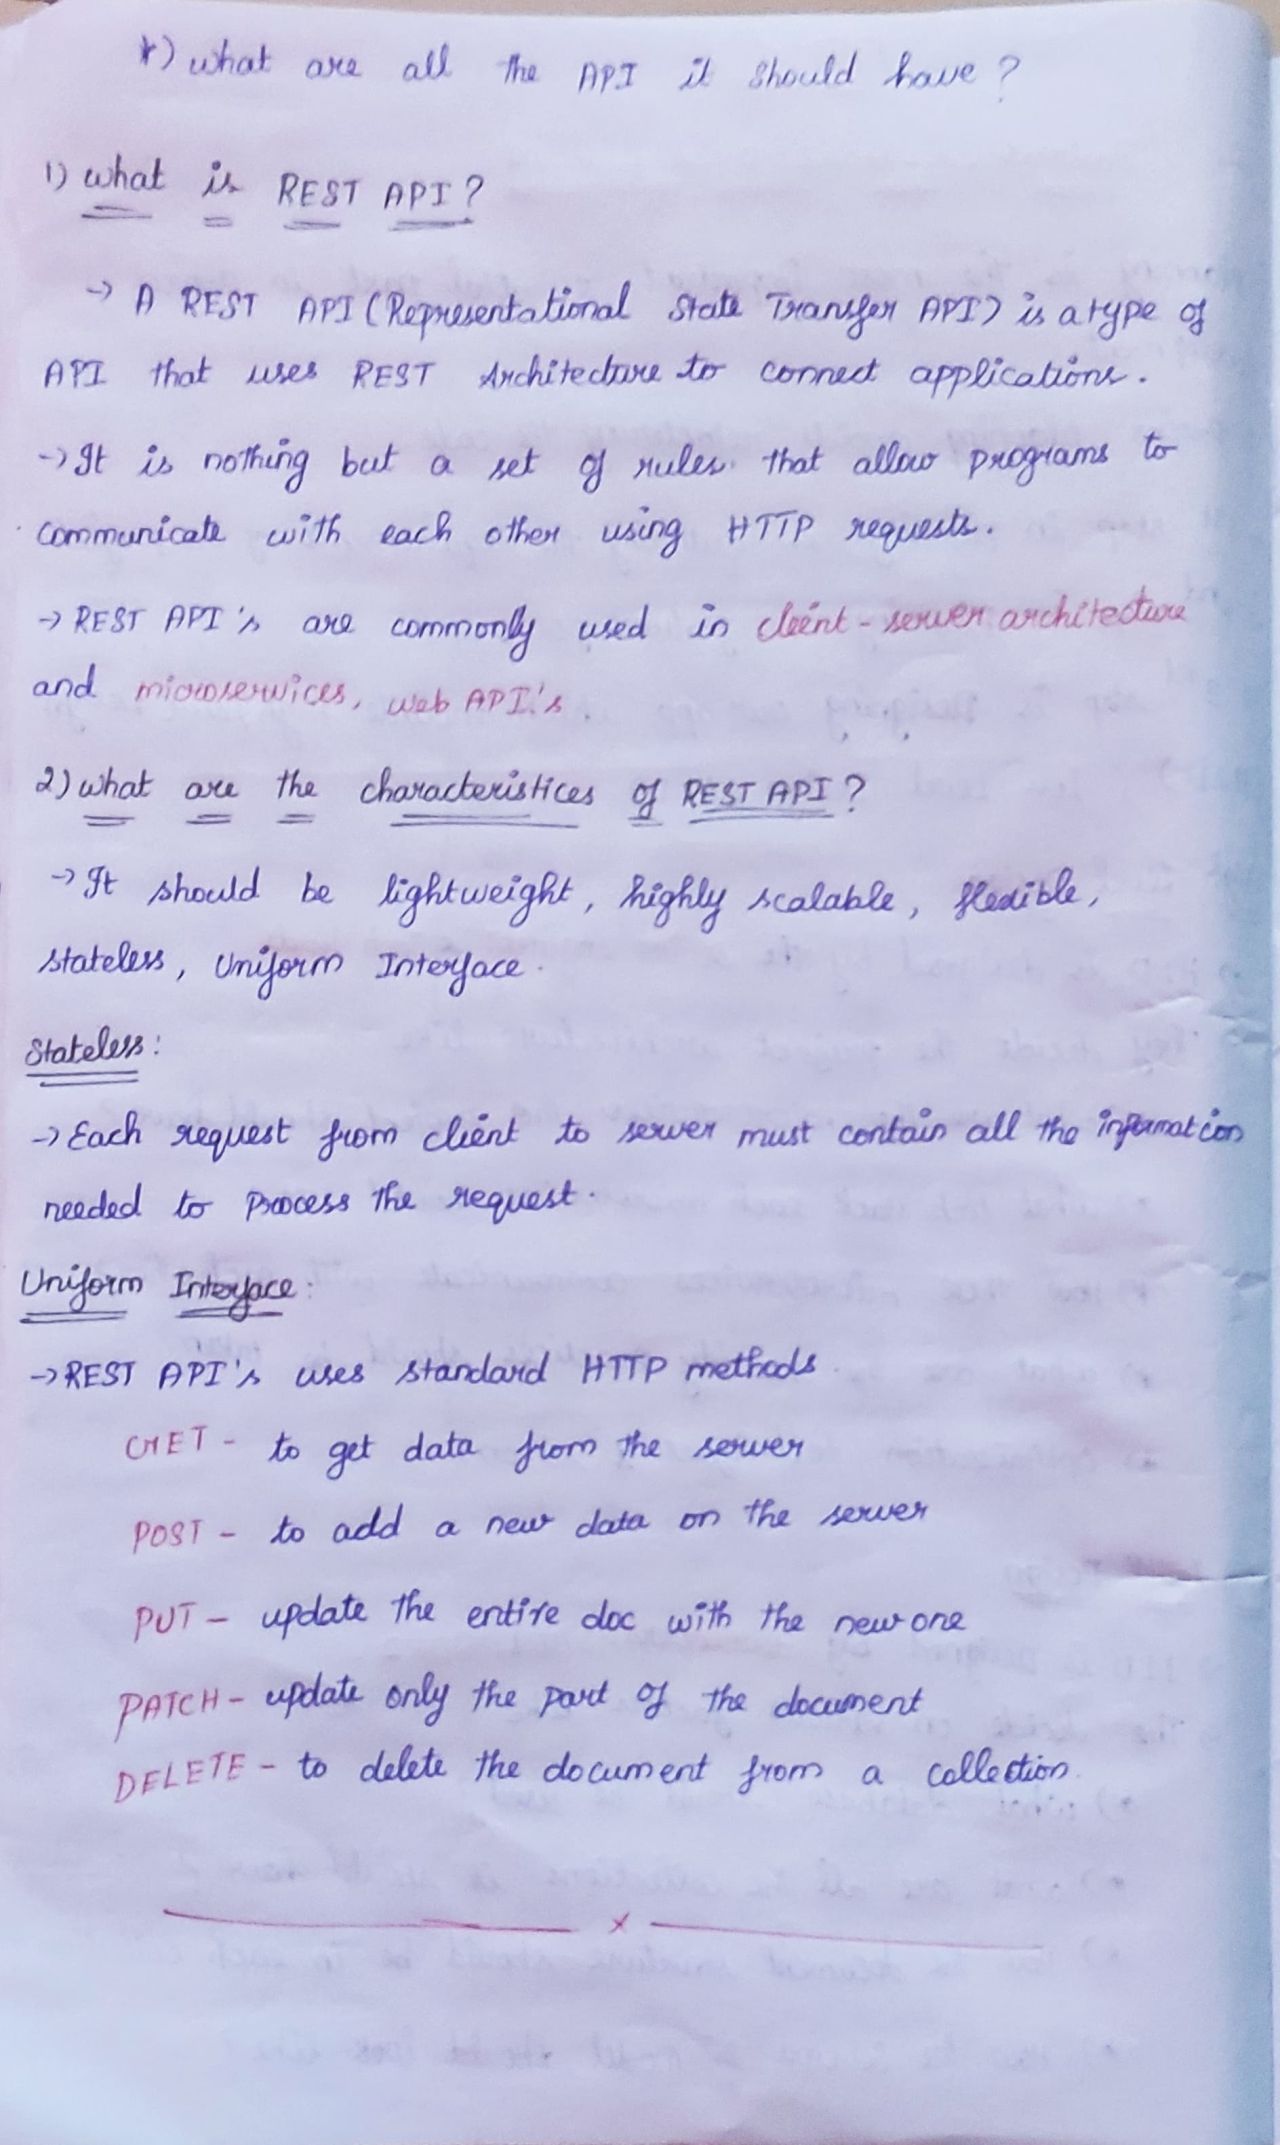 *) what are all the API it should have?
1) what is REST API?
-> A REST API (Representational State Transfer API) is a type of
API that uses REST Architecture to connect applications.
-> It is nothing but a set of rules that allow programs to
communicate with each other using HTTP requests.
-> REST API's are commonly used in client-server architecture
and microservices, web API's
2) what are the characteristices of REST API?
-> It should be lightweight, highly scalable, flexible,
stateless, Uniform Interface.
Stateless:
-> Each request from client to server must contain all the information
needed to process the request.
Uniform Interface:
-> REST API's uses standard HTTP methods.
GET - to get data from the server
POST - to add a new data on the server
PUT - update the entire doc with the new one
PATCH - update only the part of the document
DELETE - to delete the document from a collection.
x